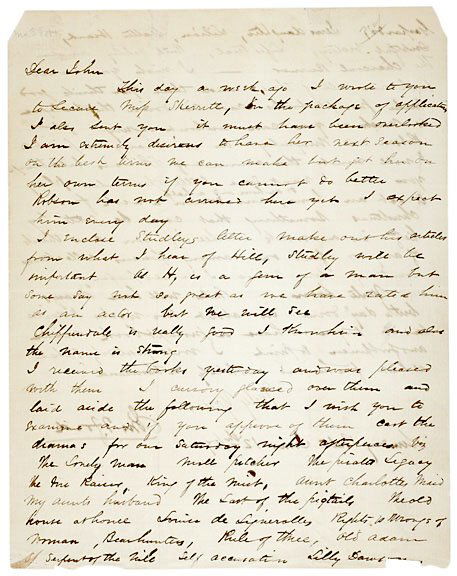 Dear John
This day a week ago I wrote to you
to secure Miss Skerrett, in the package of application
I also sent you it must have been overlooked
I am extremely desirous to have her next season
on the best terms we can make but get her on
her own terms if you cannot do better
Robson has not arrived here yet I expect
him every day
I enclose Studleys letter make out his articles
from what I hear of Hill, Studley will be
important As H, is a gem of a man but
some say not so great as we have rated him
as an actor but we will see
Chippendale is really good I think and also
the name is strong
I received the books yesterday and was pleased
with them I cursory glanced over them and
laid aside the following that I wish you to
examine and if you approve of them cast the
dramas for our Saturday night afterpieces viz
The Lonely man Mill Pitcher The pirates Legacy
the King of the mist, Aunt Charlottes Maid
My aunts husband The Last of the pigtails The old
house at home Louise de Lignerolles Rights & Wrongs of
Woman, Bearhunters, Rule of Three, Old Adam
Serpent of the Nile Self accusation Lilly Dawson